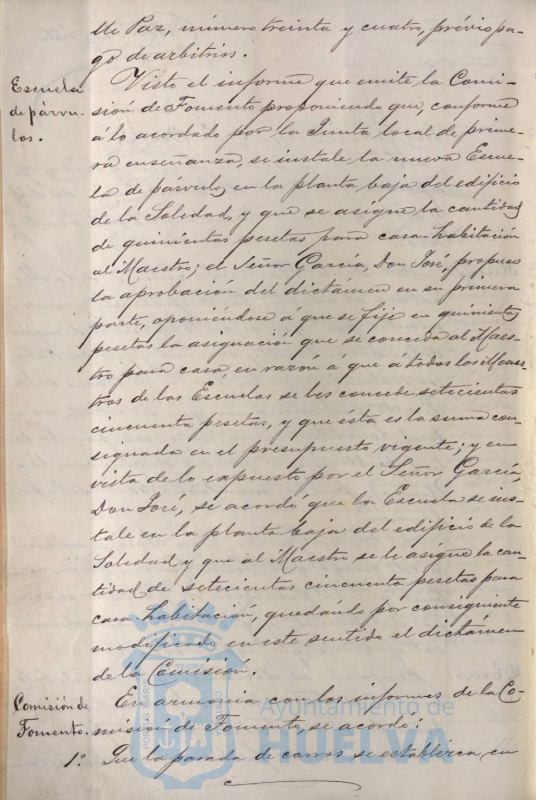 de Paz, número treinta y cuatro, prévio pa-
go de arbitrios.
Escuela
de párvu-
los.
Visto el informe que emite la Comi-
sión de Fomento proponiendo que, conforme
á lo acordado por la Junta local de prime-
ra enseñanza, se instale la nueva Escue-
la de párvulos en la planta baja del edificio
de la Soledad, y que se asigne la cantidad
de quinientas pesetas para casa-habitación
al Maestro; el Señor García, Don José, propuso
la aprobación del dictámen en su primera
parte, oponiéndose á que se fije en quinientas
pesetas la asignación que se conceda al Maes-
tro para casa, en razón á que á todos los Maes-
tros de las Escuelas se les concede setecientas
cincuenta pesetas, y que ésta es la suma con-
signada en el presupuesto vigente; y en
vista de lo expuesto por el Señor García,
Don José, se acordó que la Escuela se ins-
tale en la planta baja del edificio de la
Soledad y que al Maestro se le asigne la can-
tidad de setecientas cincuenta pesetas para
casa habitación, quedando por consiguiente
modificado en este sentido el dictámen
de la Comisión.
Comisión de
Fomento.
En armonia con los informes de la Co-
misión de Fomento, se acordó:
1º. Que la parada de carros se establezca en
Ayuntamiento de
HUELVA